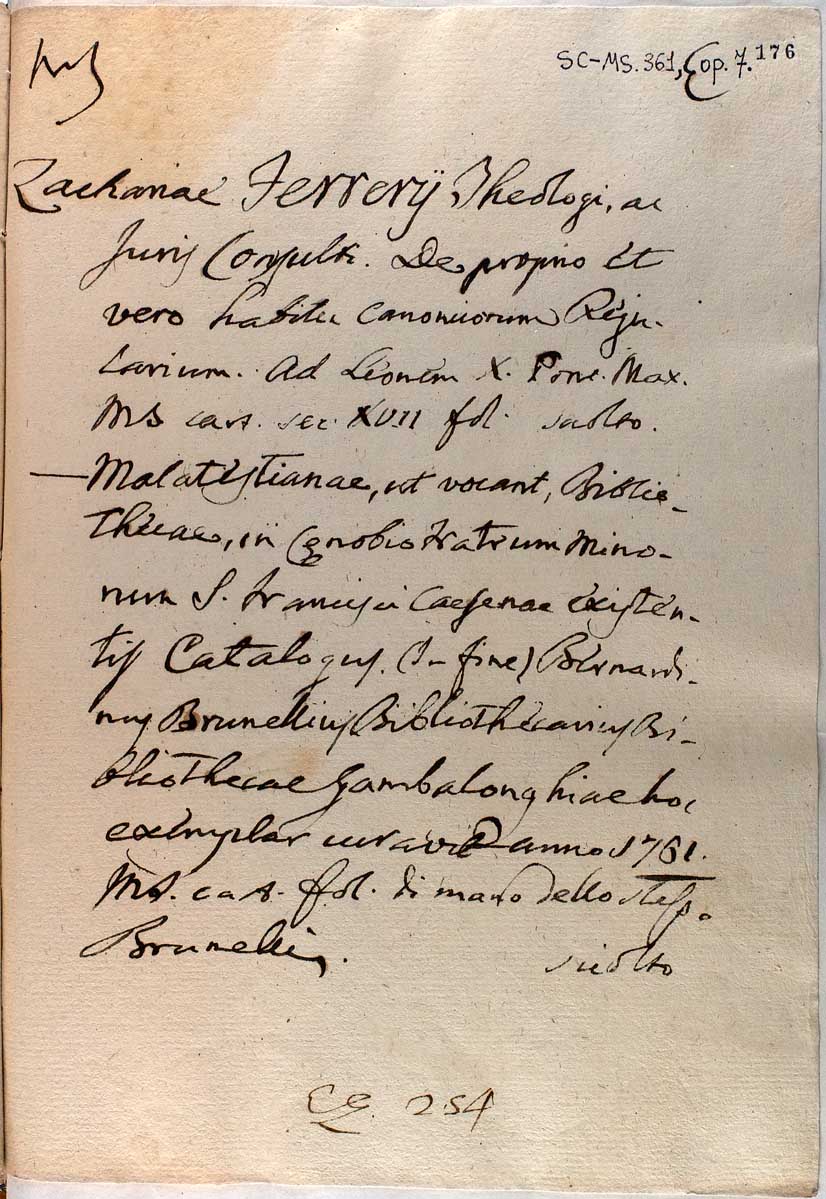 Ms
SC-MS. 361, Cop. 7. 176
Zachariae Ferrerij Theologi, ac
Juris Consulti. De proprio et
vero habitu Canonicorum Regu-
larium. Ad Leonem X. Pont. Max.
MS cart. sec. XVII fol. sciolto.
— Malatestianae, ut vocant, Biblio-
thecae, in Cœnobio Fratrum Mino-
rum S. Francisci Caesenae existen-
tis Catalogus. (In fine) Bernardi-
nus Brunellius Bibliothecarius Bi-
bliothecae Gambalonghiae hoc
exemplar curavit anno 1761.
MS. cart. fol. di mano dello stesso
Brunelli. sciolto
254